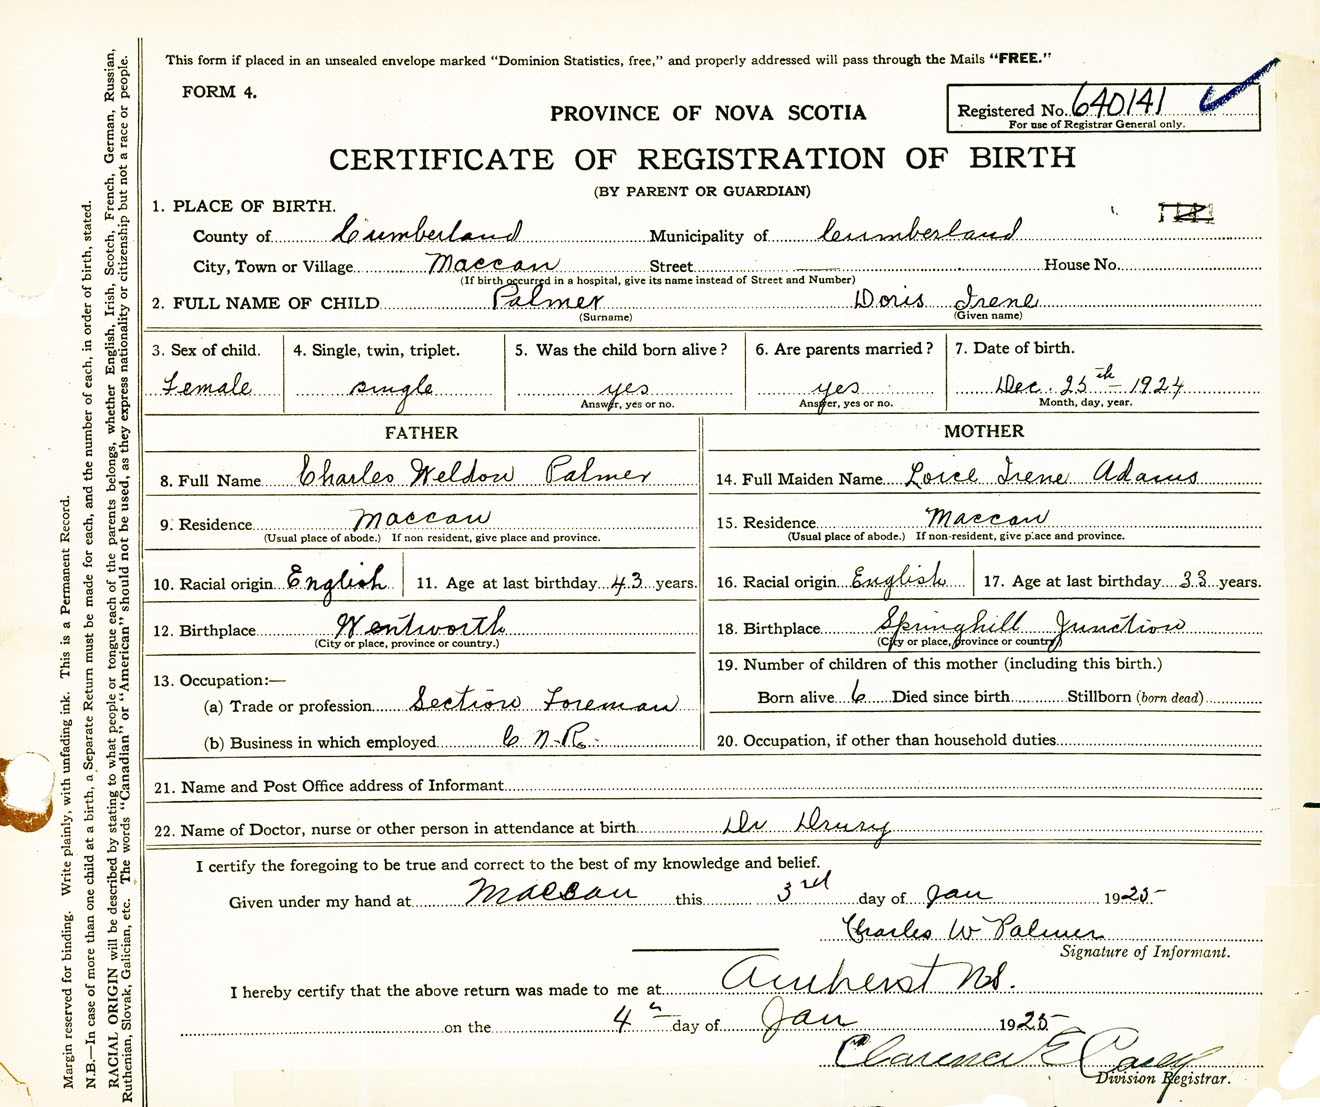 This form if placed in an unsealed envelope marked "Dominion Statistics, free," and properly addressed will pass through the Mails "FREE."
FORM 4.
PROVINCE OF NOVA SCOTIA
Registered No. 640141
For use of Registrar General only.
CERTIFICATE OF REGISTRATION OF BIRTH
(BY PARENT OR GUARDIAN)
1. PLACE OF BIRTH.
County of Cumberland Municipality of Cumberland
City, Town or Village Maccan Street — House No.
(If birth occurred in a hospital, give its name instead of Street and Number)
2. FULL NAME OF CHILD Palmer Doris Irene
(Surname) (Given name)
3. Sex of child. 4. Single, twin, triplet. 5. Was the child born alive? 6. Are parents married? 7. Date of birth.
Female single yes yes Dec. 25th 1924
Answer, yes or no. Answer, yes or no. Month, day, year.
FATHER MOTHER
8. Full Name Charles Weldon Palmer 14. Full Maiden Name Irene Adams
9. Residence Maccan 15. Residence Maccan
(Usual place of abode.) If non resident, give place and province. (Usual place of abode.) If non-resident, give place and province.
10. Racial origin English 11. Age at last birthday 43 years. 16. Racial origin English 17. Age at last birthday 33 years.
12. Birthplace Wentworth 18. Birthplace Springhill Junction
(City or place, province or country.) (City or place, province or country)
13. Occupation:— 19. Number of children of this mother (including this birth.)
(a) Trade or profession Section Foreman Born alive 6 Died since birth Stillborn (born dead)
(b) Business in which employed C.N.R. 20. Occupation, if other than household duties
21. Name and Post Office address of Informant
22. Name of Doctor, nurse or other person in attendance at birth Dr Drury
I certify the foregoing to be true and correct to the best of my knowledge and belief.
Given under my hand at Maccan this 3rd day of Jan 1925
Charles W Palmer
Signature of Informant.
I hereby certify that the above return was made to me at Amherst N.S.
on the 4th day of Jan 1925
Clarence E Casey
Division Registrar.
Margin reserved for binding. Write plainly, with unfading ink. This is a Permanent Record.
N.B.—In case of more than one child at a birth, a Separate Return must be made for each, and the number of each, in order of birth, stated.
RACIAL ORIGIN will be described by stating to what people or tongue each of the parents belongs, whether English, Irish, Scotch, French, German, Russian,
Ruthenian, Slovak, Galician, etc. The words "Canadian" or "American" should not be used, as they express nationality or citizenship but not a race or people.